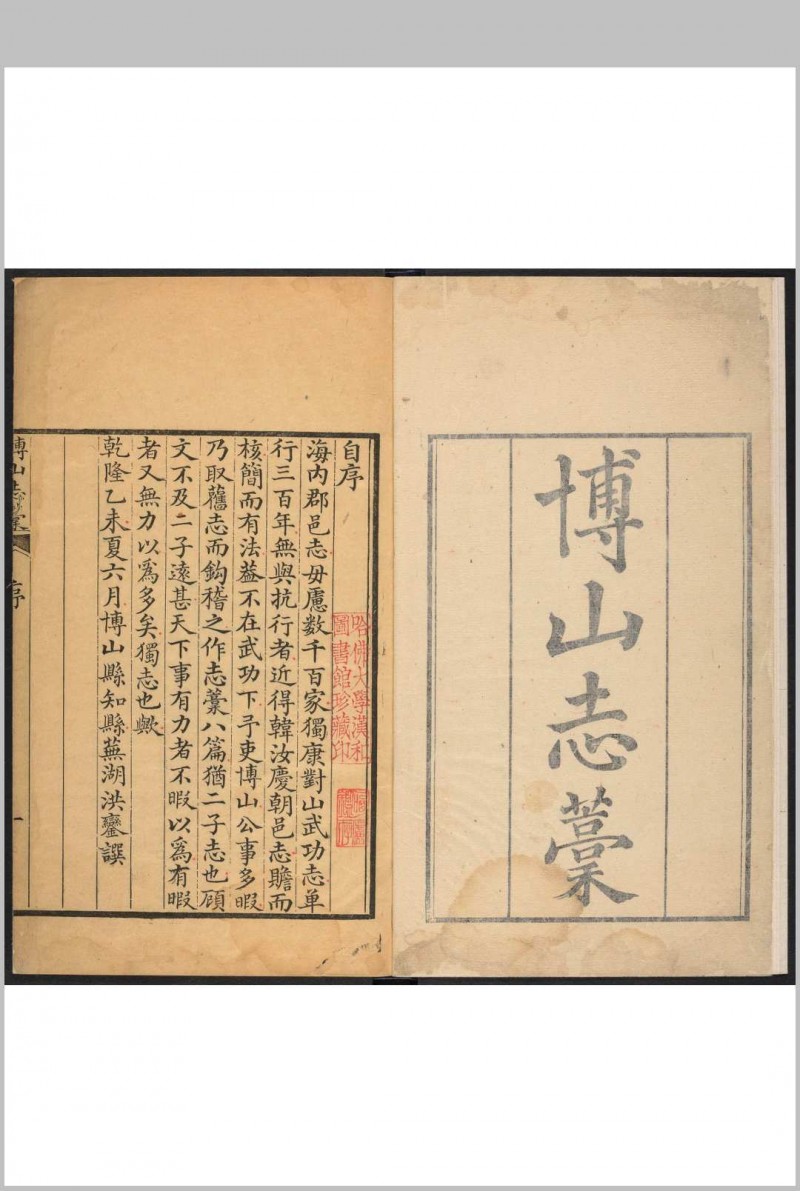 博山志藁
自序
海内郡邑志毋慮数千百家獨康對山武功志单
行三百年無與抗行者近得韓汝慶朝邑志贍而
核簡而有法葢不在武功下予吏博山公事多暇
乃取舊志而鈎稽之作志藁八篇猶二子志也顧
文不及二子遠甚天下事有力者不暇以爲有暇
者又無力以爲多矣獨志也歟
乾隆乙未夏六月博山縣知縣蕪湖洪鑾譔
哈佛大學漢和
圖書館珍藏印
博山志藁
序
一